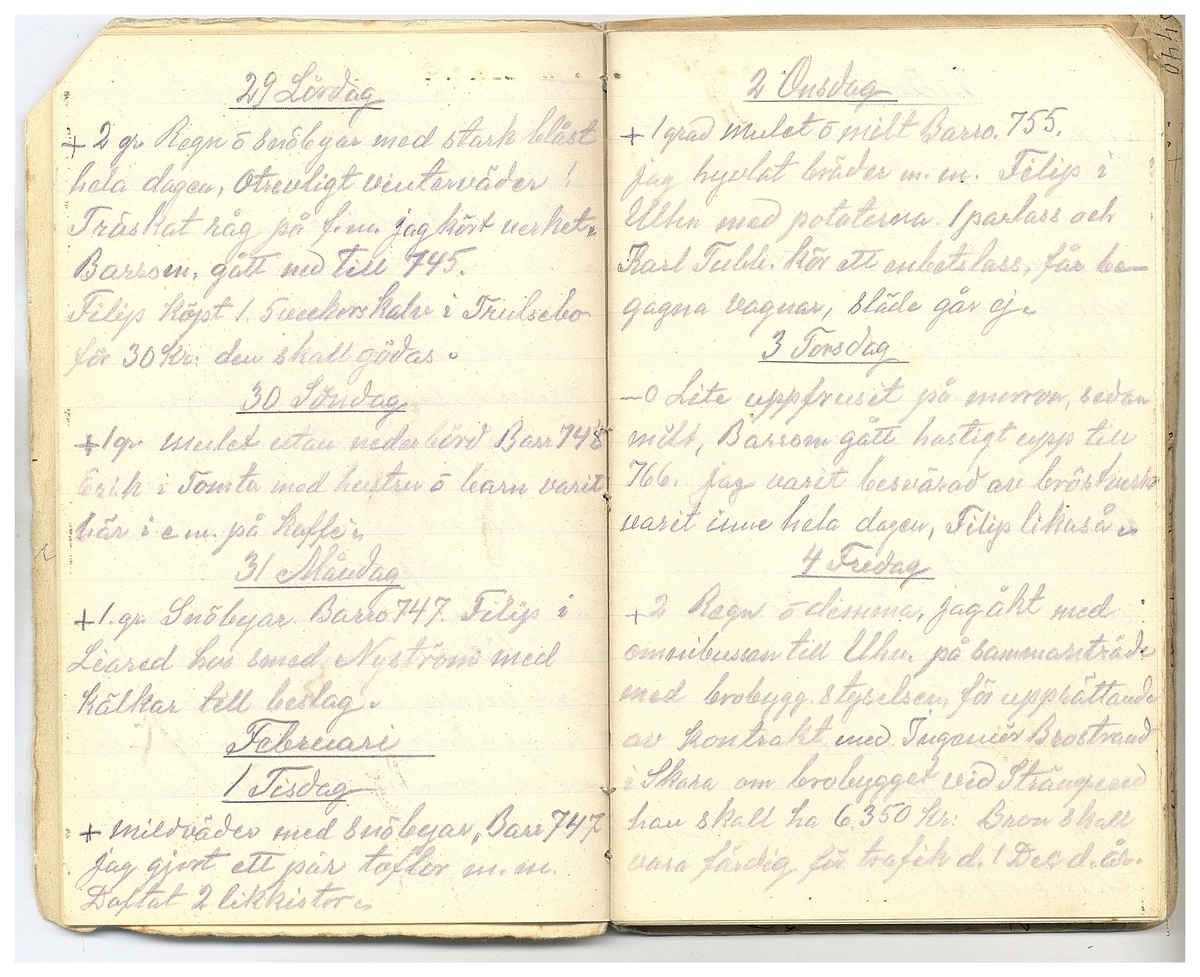 29 Lördag
+ 2 gr. Regn o snöbyar med stark blåst
hela dagen, Otrevligt vinterväder !
Träskat råg på f.m. jag kört verket.
Barrom. gått ned till 745.
Filip köpt 1. 5veckorskalv i Trulsebo
för 30 Kr: den skall gödas.
30 Söndag
+1 gr. mulet utan nederbörd Barr 748
Erik i Tomta med hustru o barn varit
här i e m. på Kaffe.
31 Måndag
+1. gr. Snöbyar. Barro 747. Filip i
Liared hos smed Nyström med
Kälkar till beslag.
Februari
1 Tisdag
+ mildväder med snöbyar, Barr 747
jag gjort ett par taflor m.m.
2 likkistor.
2 Onsdag
+ 1 grad mulet o milt Barro. 755.
jag hyvlat bräder m. m. Filip i
Ulhn med potaterna. 1 parlass och
Karl Kör ett enbetslass, får be-
gagna vagnar, släde går ej.
3 Torsdag
-0 Lite uppfruset på morron, sedan
milt, Barrom gått hastigt upp till
766. jag varit besvärad av bröstverk
varit inne hela dagen, Filip likaså.
4 Fredag
+2 Regn o dimma, jag åkt med
omnibussen till Ulhn. på sammanträde
med brobygg. styrelsen, för upprättande
av Kontrakt med Ingeniör Brostrand
i Skara om brobygget vid Strängered
han skall ha 6.350 Kr: Bron skall
vara färdig för trafik d. 1 Dec d. år.
440